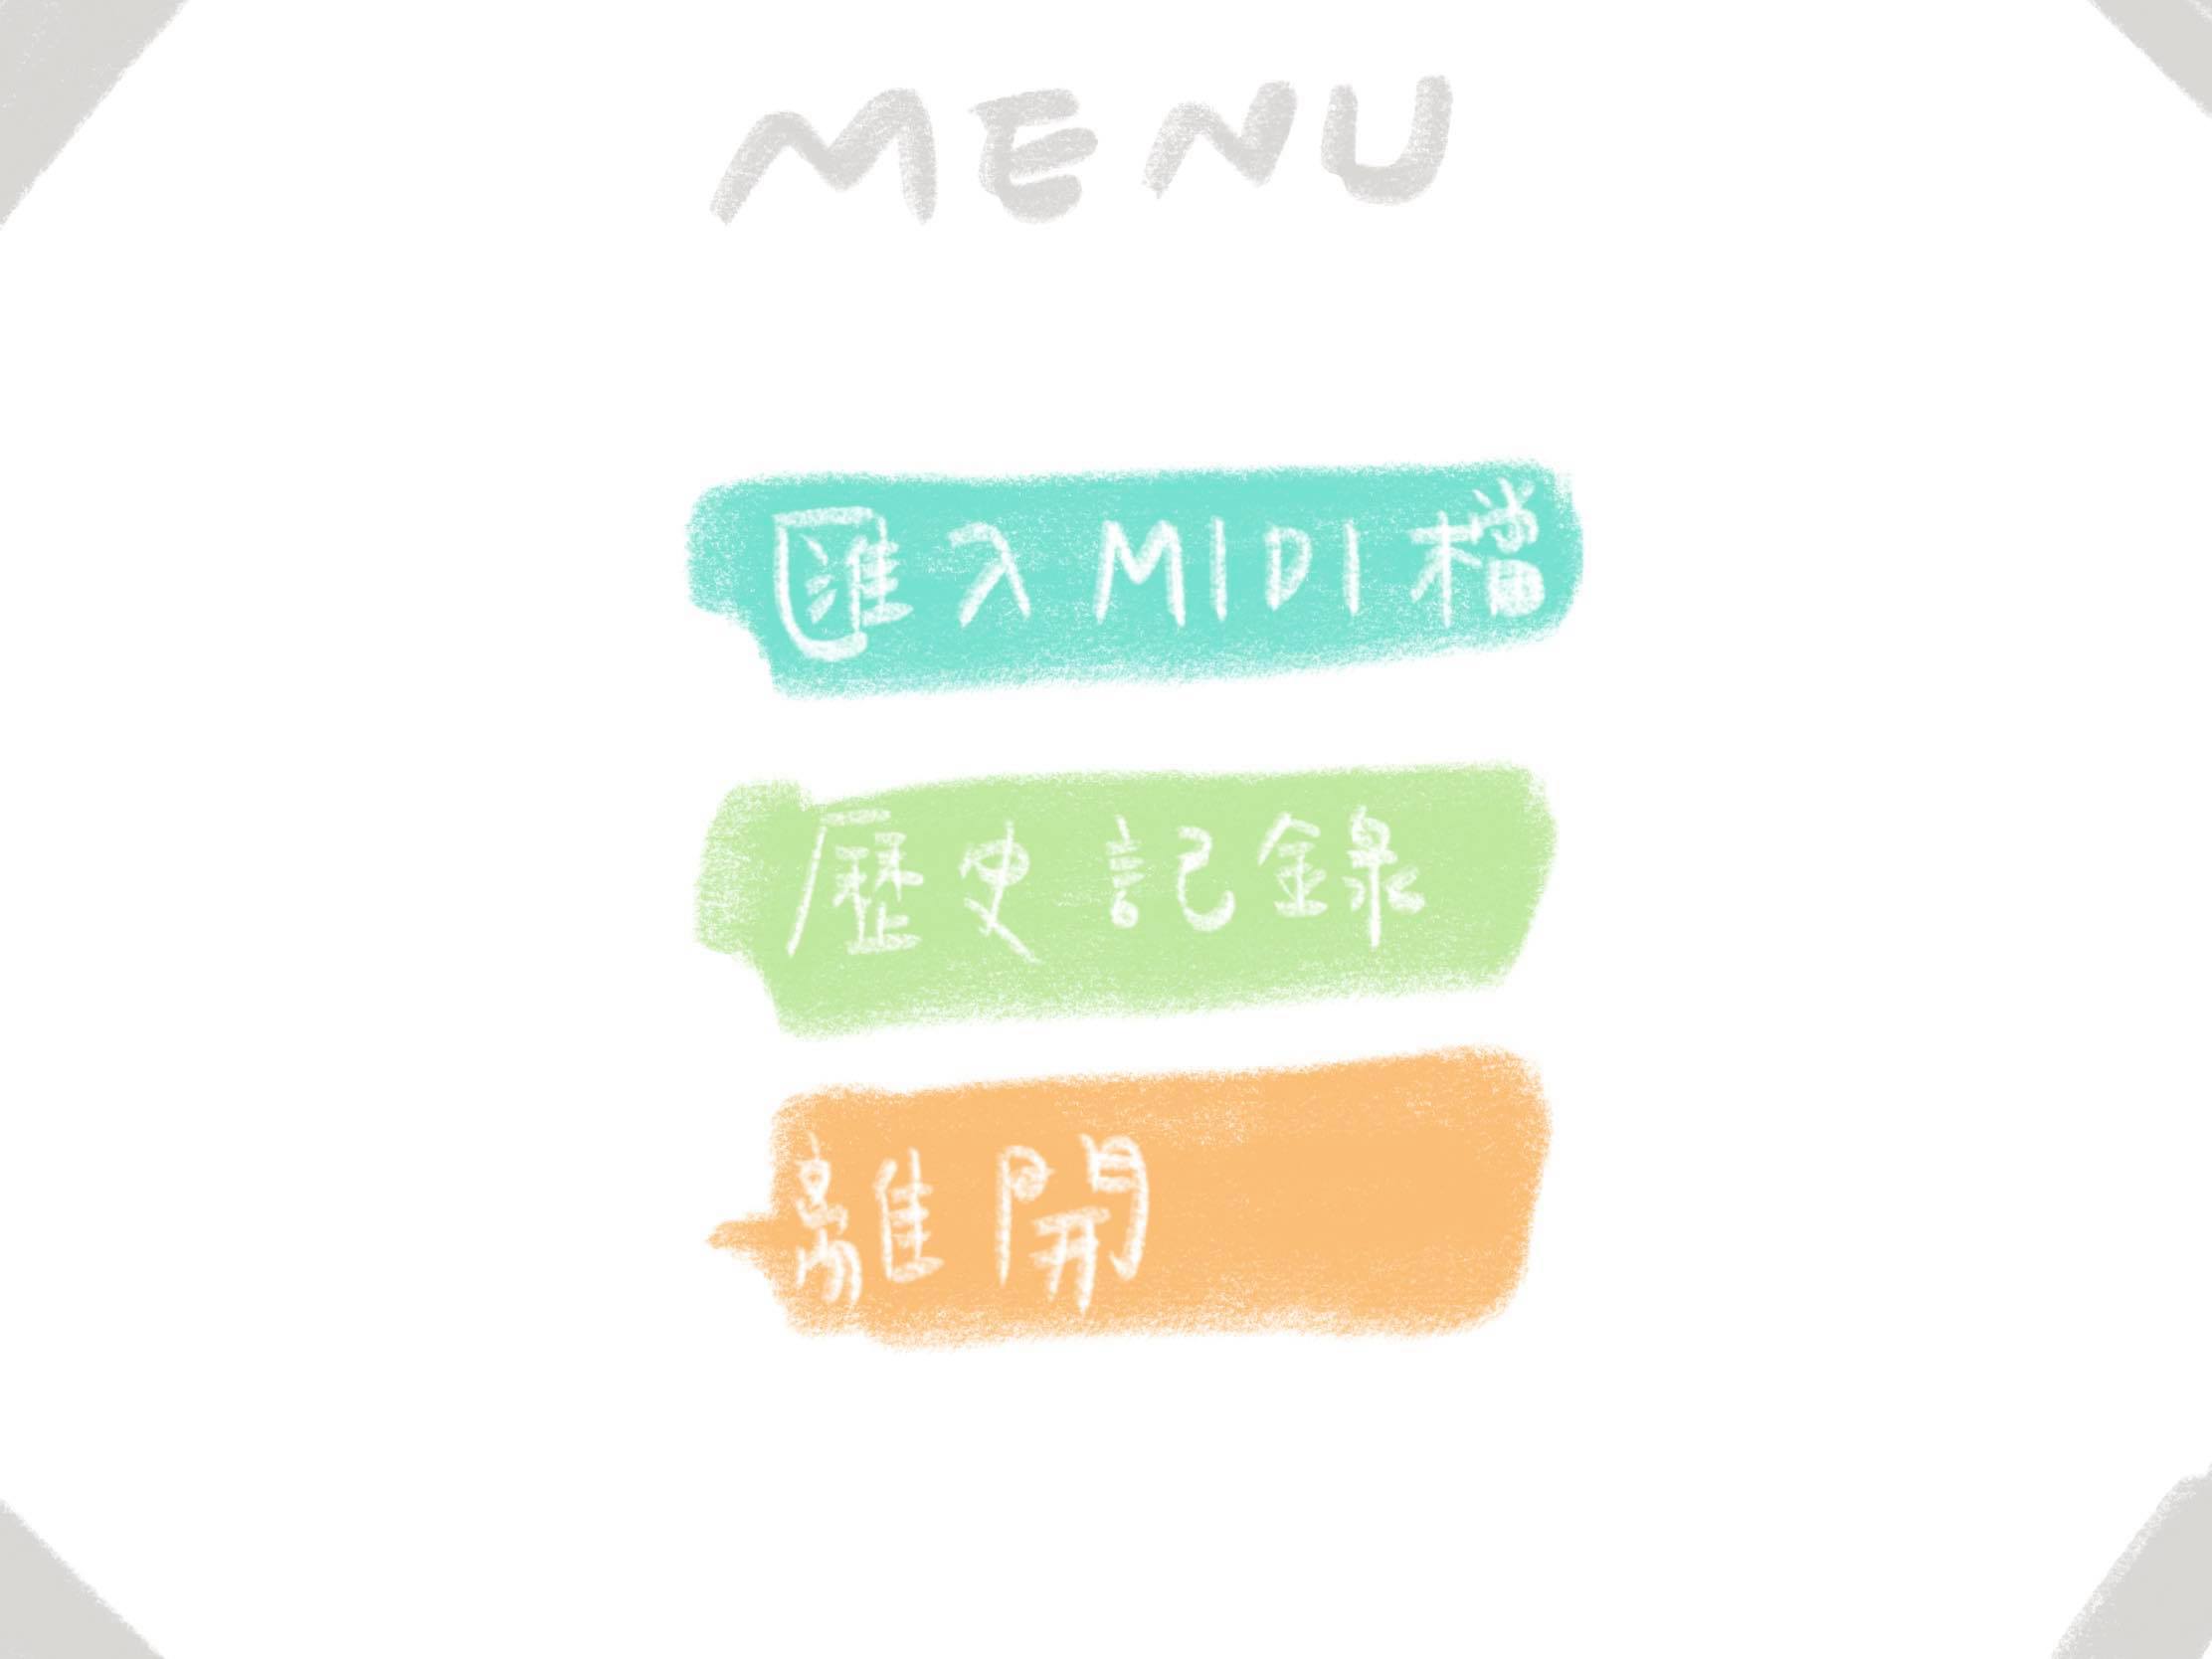 MENU
匯入MIDI檔
歷史記錄
離開